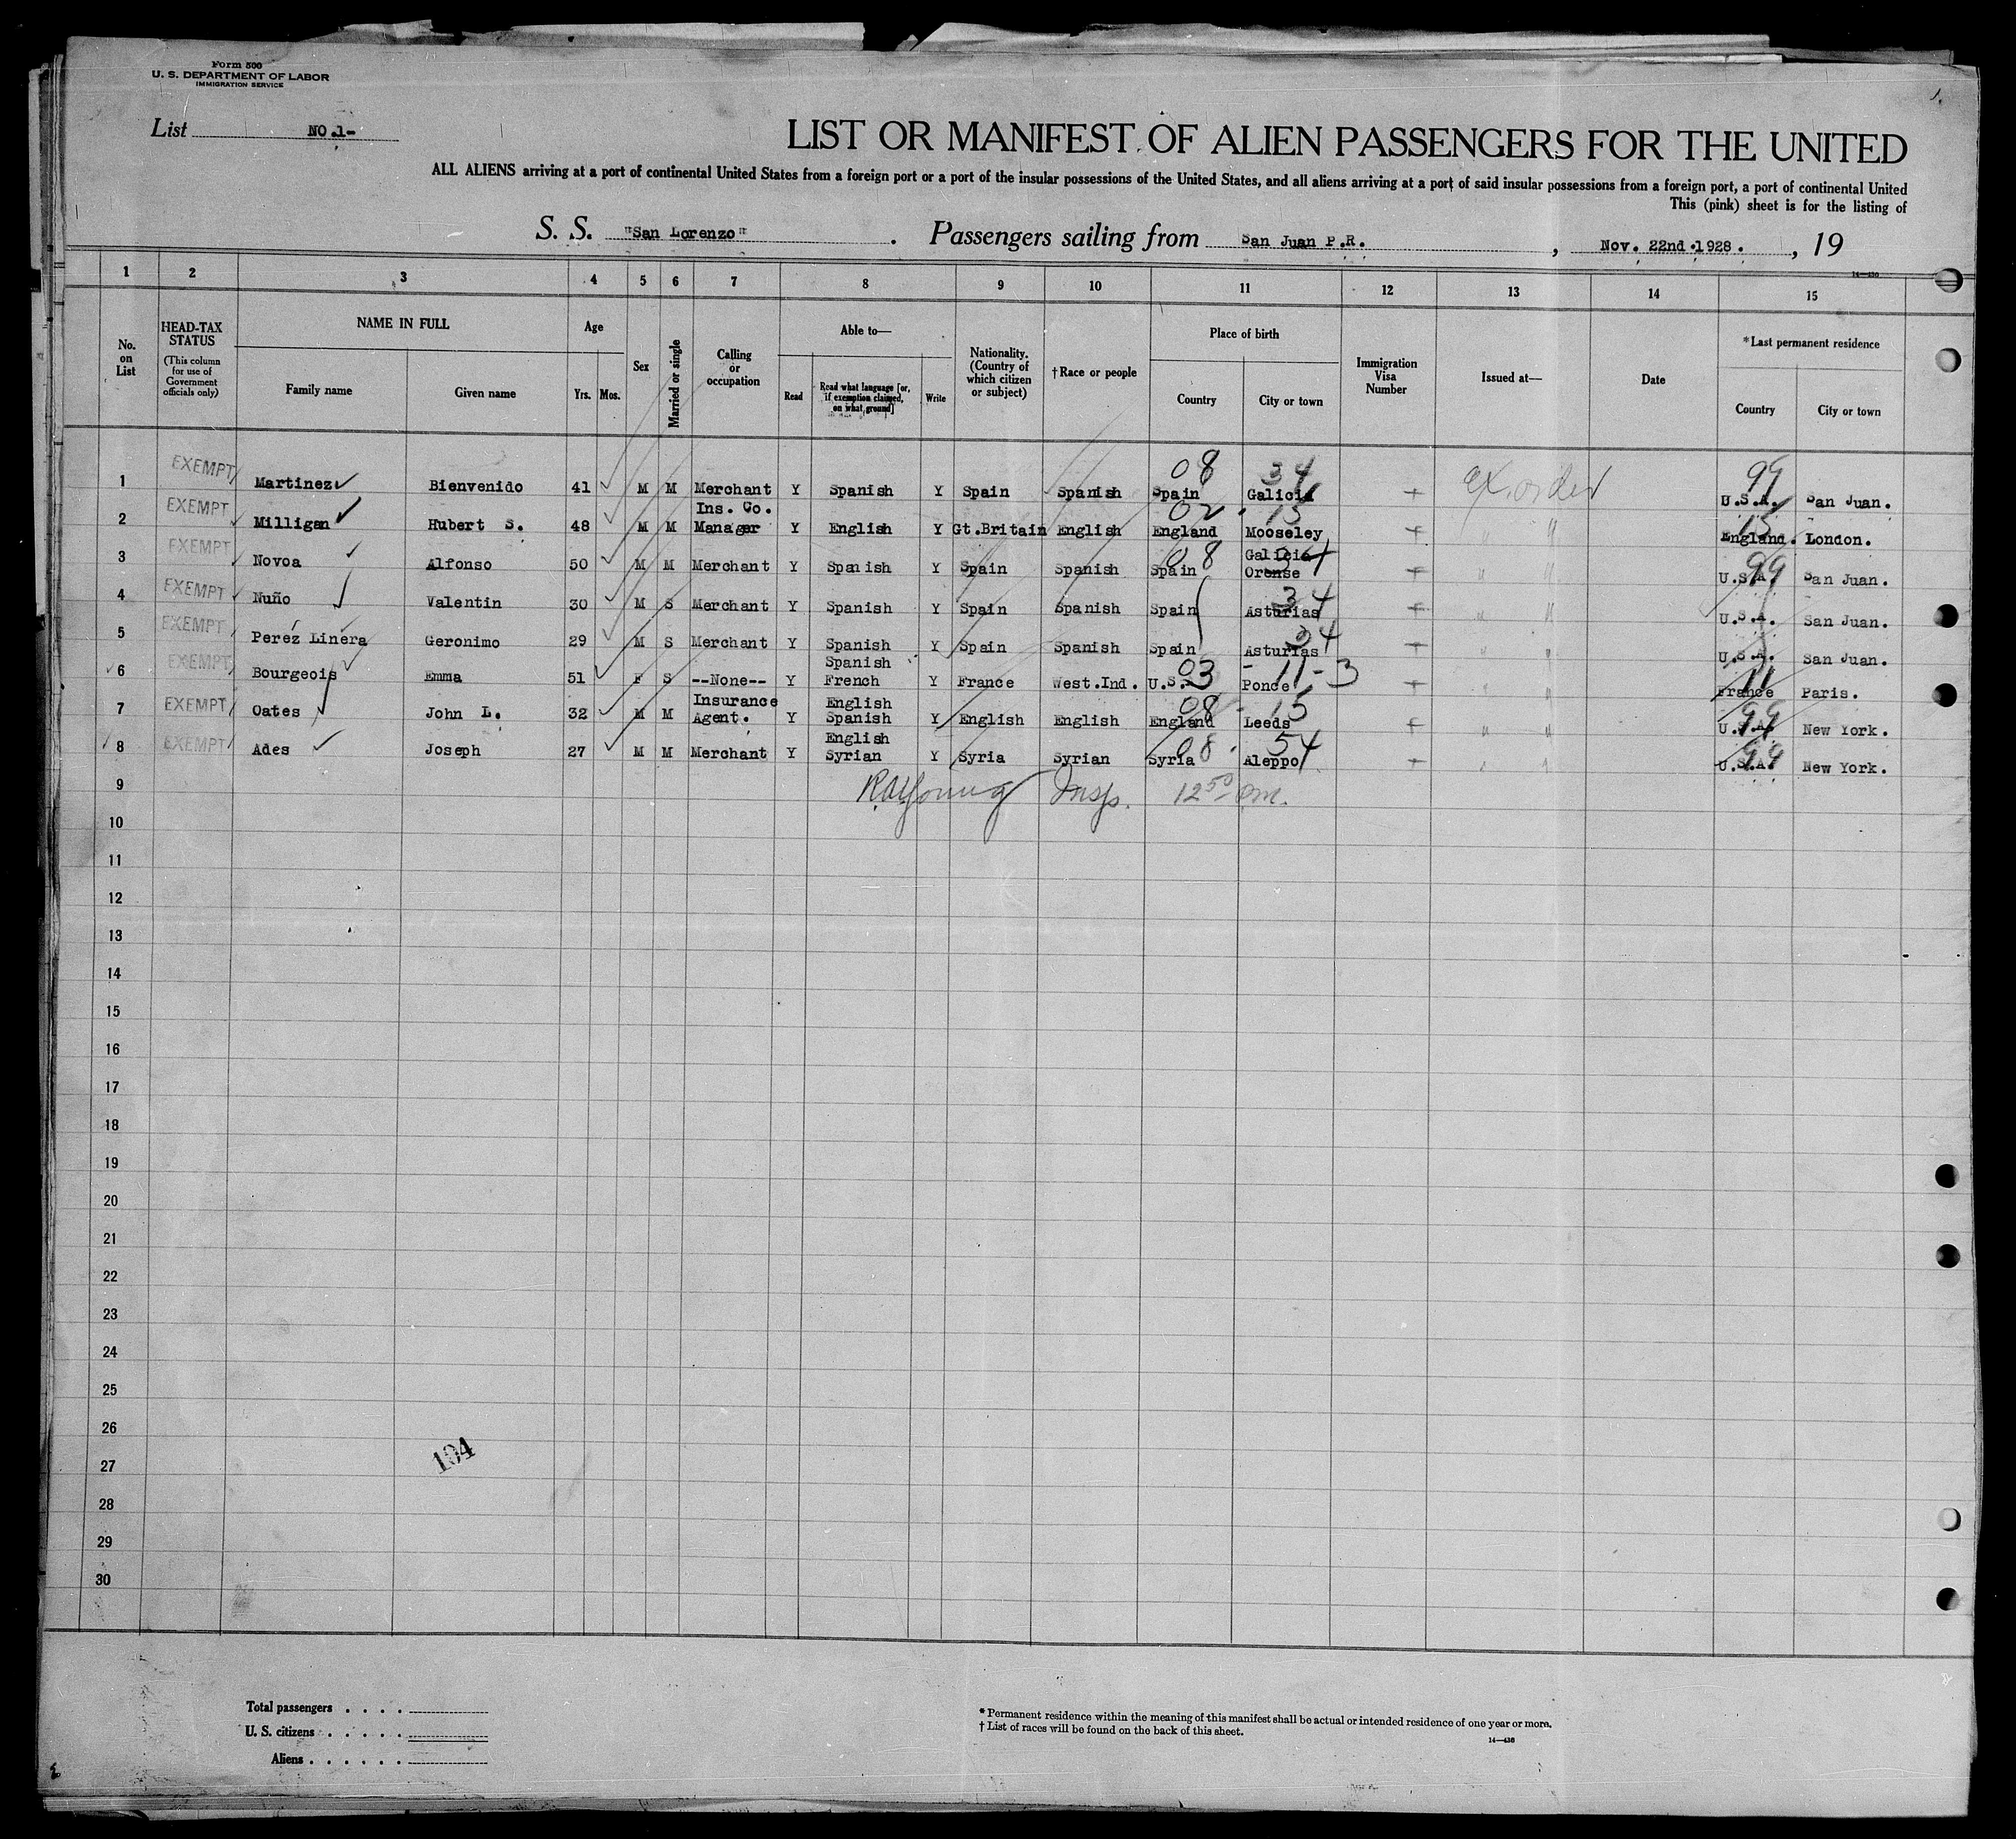 Form 500
U. S. DEPARTMENT OF LABOR
IMMIGRATION SERVICE
1.
List NO.1-
LIST OR MANIFEST OF ALIEN PASSENGERS FOR THE UNITED
ALL ALIENS arriving at a port of continental United States from a foreign port or a port of the insular possessions of the United States, and all aliens arriving at a port of said insular possessions from a foreign port, a port of continental United
This (pink) sheet is for the listing of
S. S. "San Lorenzo" . Passengers sailing from San Juan P.R. , Nov. 22nd.1928. , 19
1 2 3 4 5 6 7 8 9 10 11 12 13 14 15
No. on List HEAD-TAX STATUS (This column for use of Government officials only) NAME IN FULL Family name Given name Age Yrs. Mos. Sex Married or single Calling or occupation Able to— Read Read what language [or, if exemption claimed, on what ground] Write Nationality. (Country of which citizen or subject) †Race or people Place of birth Country City or town Immigration Visa Number Issued at— Date *Last permanent residence Country City or town
08 34 99
1 EXEMPT Martinez Bienvenido 41 M M Merchant Y Spanish Y Spain Spanish Spain Galicia ex. order U.S.A. San Juan.
02 15 15
2 EXEMPT Milligan Hubert S. 48 M M Ins. Co. Manager Y English Y Gt.Britain English England Mooseley " " England. London.
08 34 99
3 EXEMPT Novoa Alfonso 50 M M Merchant Y Spanish Y Spain Spanish Spain Galicia Orense " " U.S.A. San Juan.
34
4 EXEMPT Nuño Valentin 30 M S Merchant Y Spanish Y Spain Spanish Spain Asturias " " U.S.A. San Juan.
34
5 EXEMPT Perez Linera Geronimo 29 M S Merchant Y Spanish Y Spain Spanish Spain Asturias " " U.S.A. San Juan.
03 - 11-3 11
6 EXEMPT Bourgeois Emma 51 F S --None-- Y Spanish French Y France West.Ind. U.S. Ponce " " France Paris.
08 - 15 99
7 EXEMPT Oates John L. 32 M M Insurance Agent. Y English Spanish Y English English England Leeds " " U.S.A. New York.
08 - 54 99
8 EXEMPT Ades Joseph 27 M M Merchant Y English Syrian Y Syria Syrian Syria Aleppo " " U.S.A. New York.
9 Insp. 12 50
10
11
12
13
14
15
16
17
18
19
20
21
22
23
24
25
26
194
27
28
29
30
Total passengers . . . .
U. S. citizens . . . . .
Aliens . . . . . .
* Permanent residence within the meaning of this manifest shall be actual or intended residence of one year or more.
† List of races will be found on the back of this sheet.